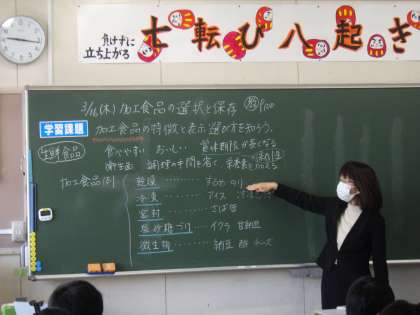 負けずに
立ち上がる
七転び八起き
2/16(木) 加工食品の選択と保存 P.100
学習課題
加工食品の特徴と表示、選び方を知ろう。
生鮮食品
食べやすい おいしい 賞味期限が長くなる
衛生面 調理の手間を省く 栄養素 加える
加工食品(例)
乾燥………するめ のり
冷凍………アイス
缶詰………さば缶
塩・砂糖づけ…イクラ 甘納豆
微生物………納豆 酢 チーズ